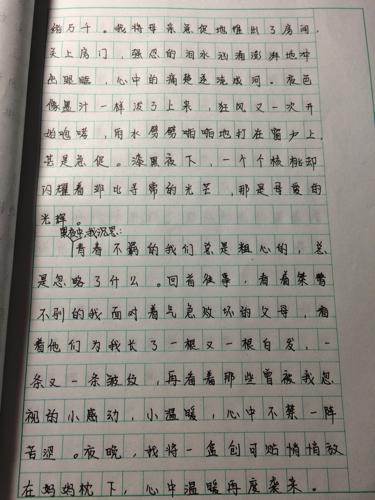 绪万千。我将母亲急促地推出了房间,
关上房门,强忍的泪水汹涌澎湃地冲
出眼眶,心中的痛楚逆流成河。夜色
像墨汁一样泼了上来,狂风又一次开
始呜咽,雨水劈劈啪啪地打在窗户上,
甚是急促。漆黑夜下,一个个核桃却
闪耀着非比寻常的光芒,那是母爱的
光辉。
黑夜中,我沉思:
青春不羁的我们总是粗心的,总
是忽略了什么。回首往事,看着桀骜
不驯的我面对着气急败坏的父母,看
着他们为我长了一根又一根白发,一
条又一条皱纹,再看看那些曾被我忽
视的小感动,小温暖,心中不禁一阵
苦涩。夜晚,我将一盒创可贴悄悄放
在妈妈枕下,心中温暖再度袭来。